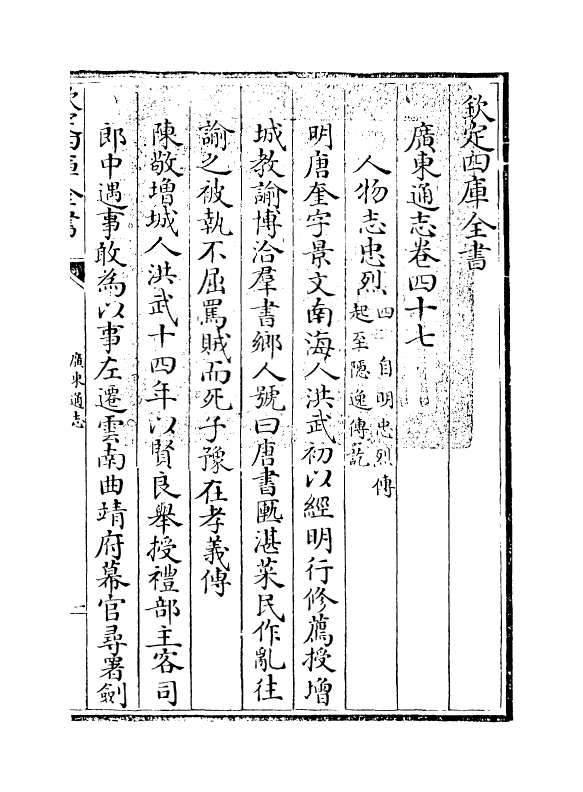 欽定四庫全書
廣東通志卷四十七
人物志忠烈四 自明忠烈傳
起至隱逸傳訖
明唐奎字景文南海人洪武初以經明行修薦授增
城教諭博洽羣書鄉人號曰唐書匭湛菜民作亂往
諭之被執不屈罵賊而死子豫在孝義傳
陳敬增城人洪武十四年以賢良舉授禮部主客司
郎中遇事敢為以事左遷雲南曲靖府幕官尋署劍
廣東通志